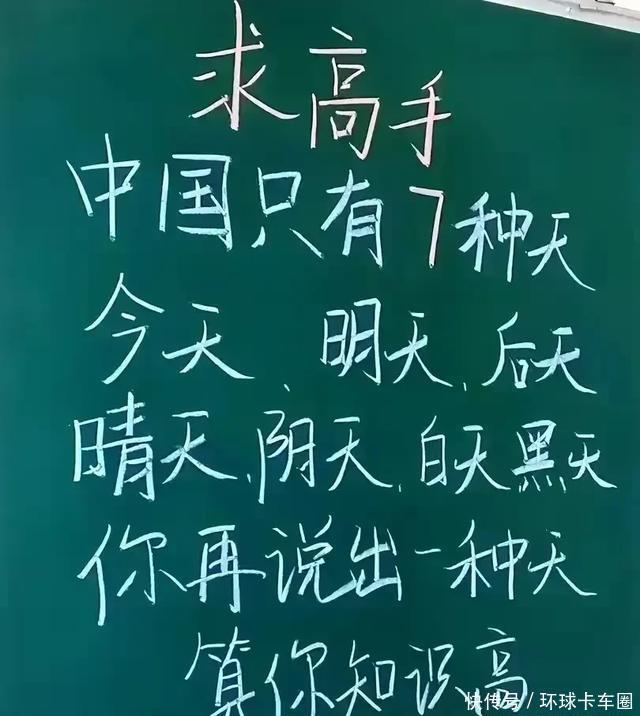 求高手
中国只有7种天
今天、明天、后天
晴天、阴天、白天黑天
你再说出一种天
算你知识高
快传号/环球卡车圈